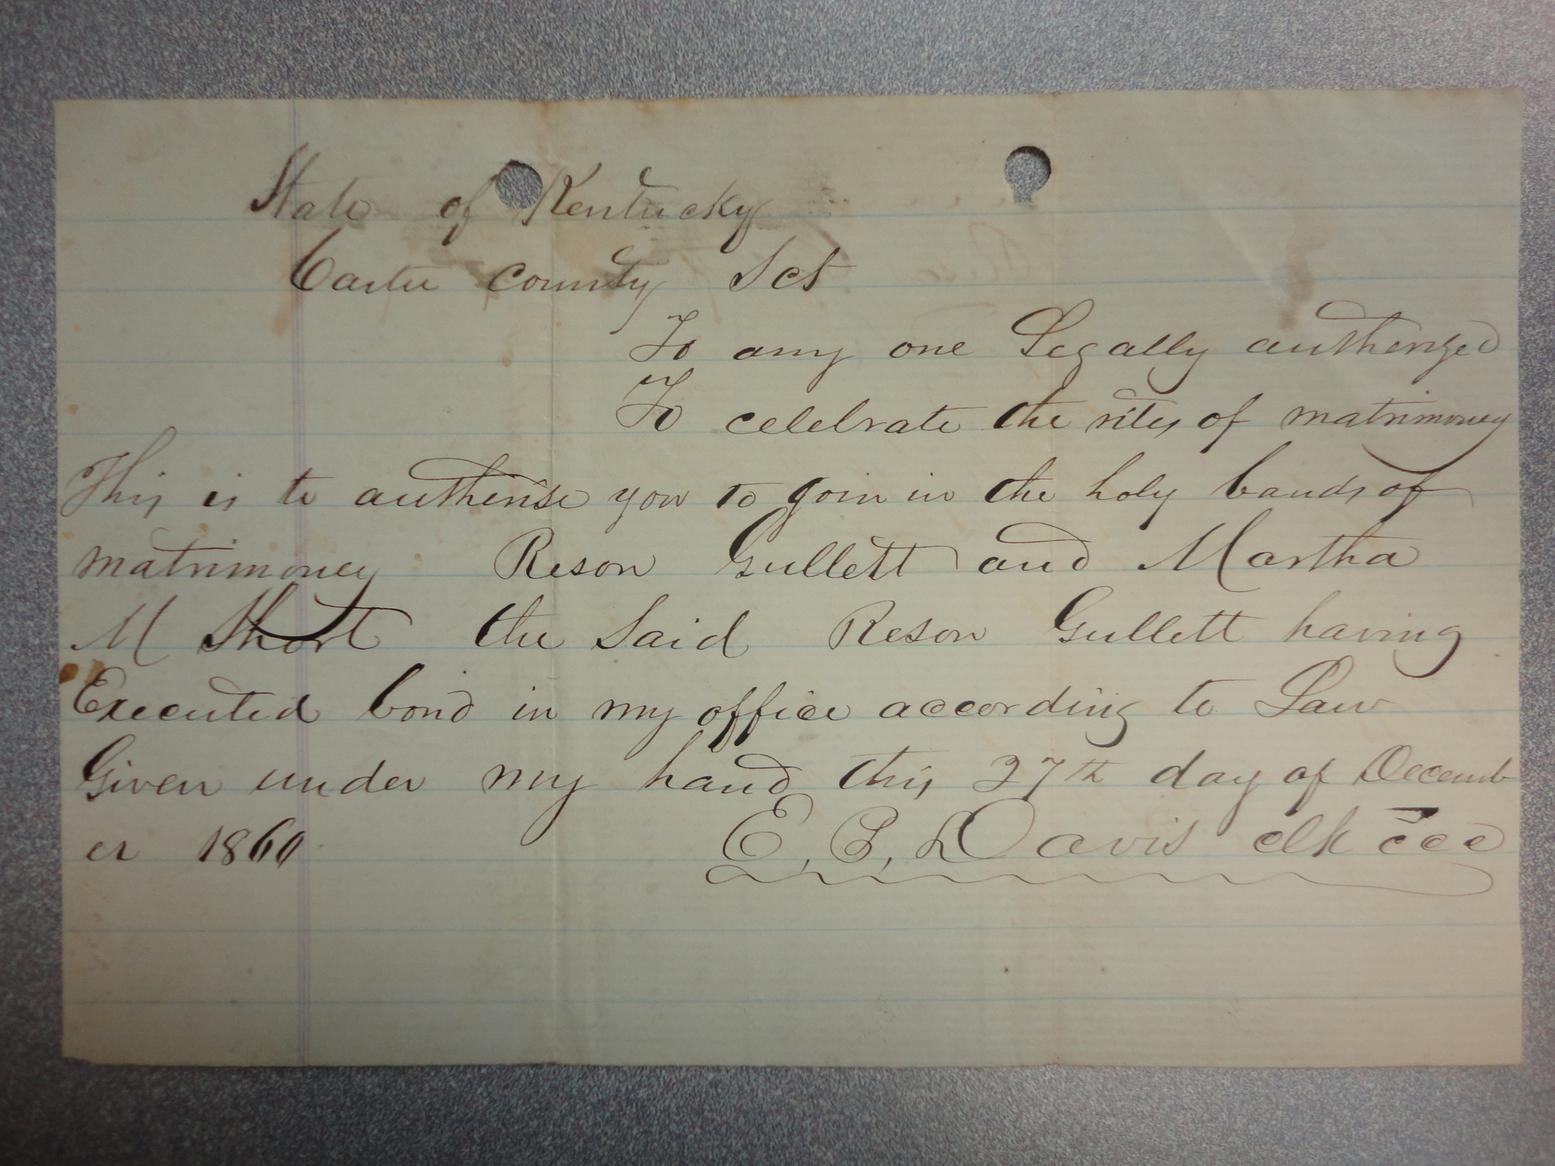 State of Kentucky
Carter County Sct
To any one Legally autherized
To celebrate the rites of matrimoney
This is to autherise you to join in the holy bands of
matrimoney Reson Gullett and Martha
M Short the Said Reson Gullett having
Executed bond in my office according to Law
Given under my hand this 27th day of Decemb
er 1860 E. B. Davis clk CCC